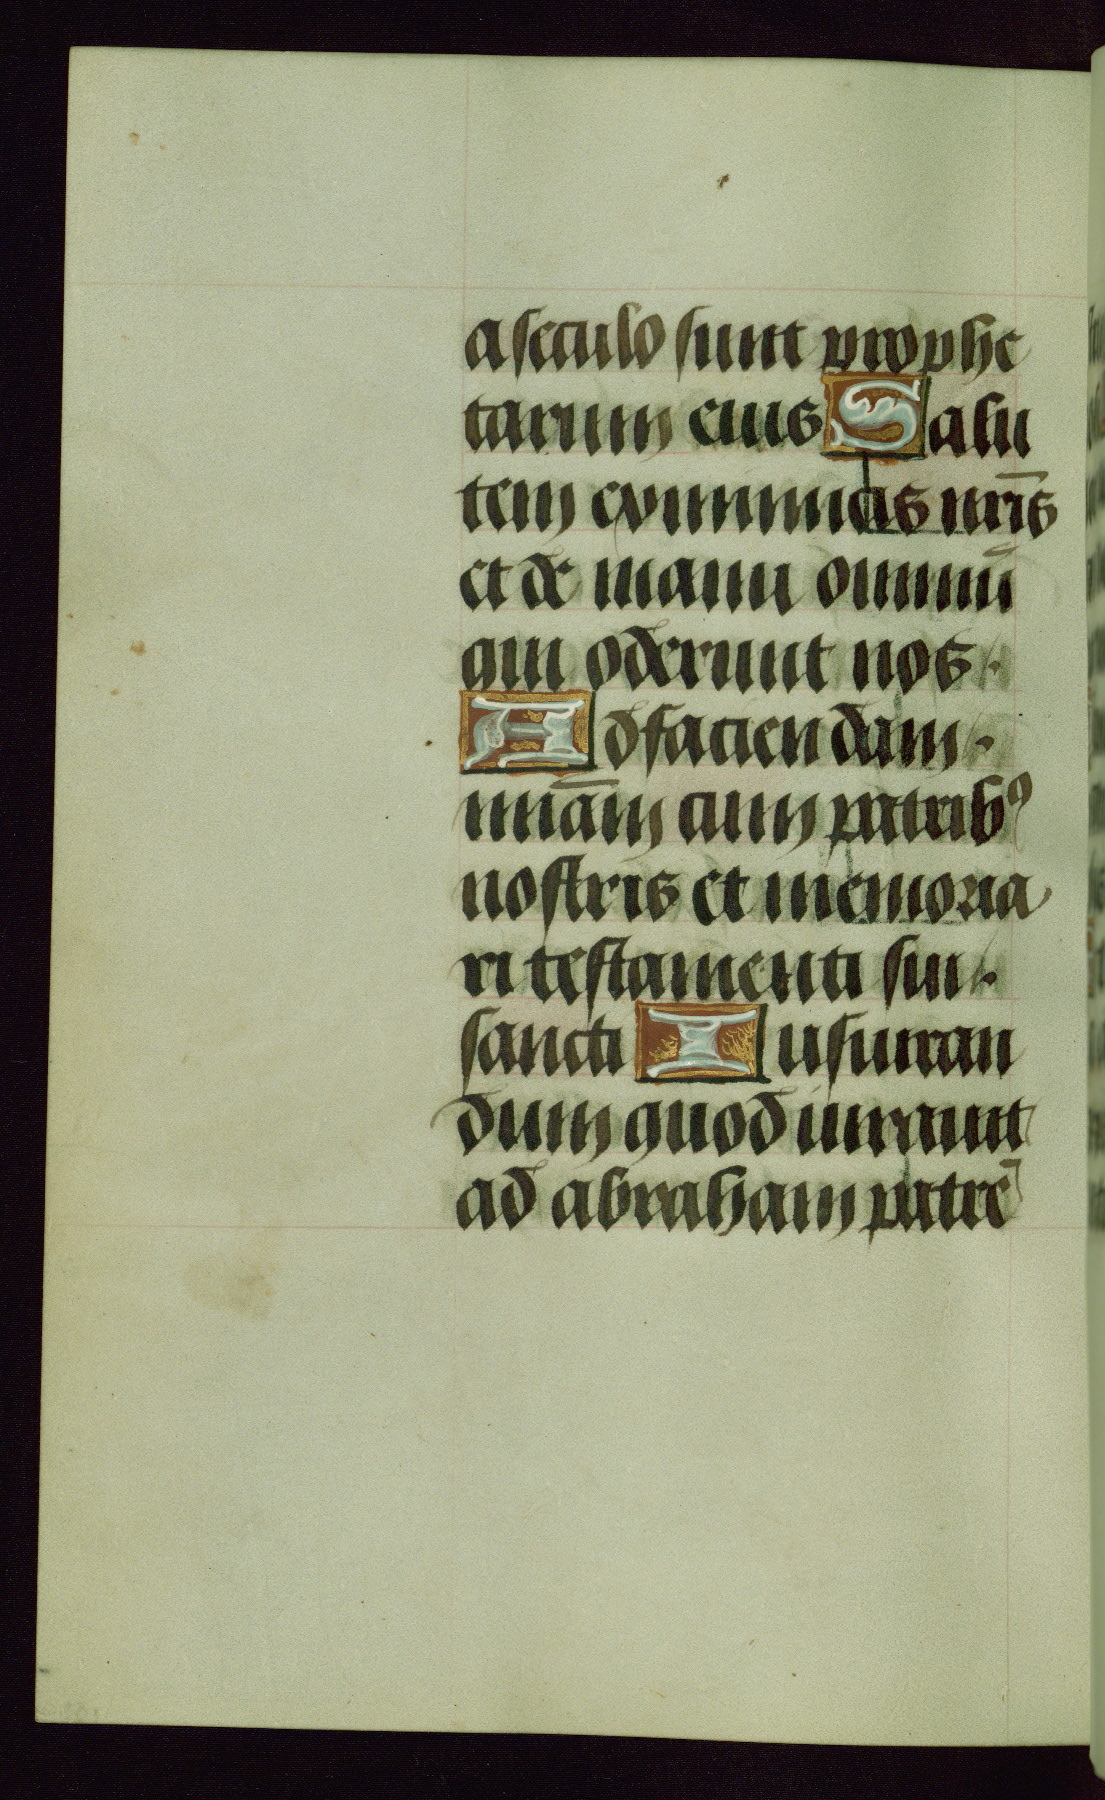 a seculo sunt prophe
tarum eius Salu
tem ex inimicis nr̄is
et de manu omniū
qui oderunt nos.
Ad faciendam.
miām cum patribꝰ
nostris et memora
ri testamenti sui.
sancti Iusiuran
dum quod iurauit
ad abraham patrē